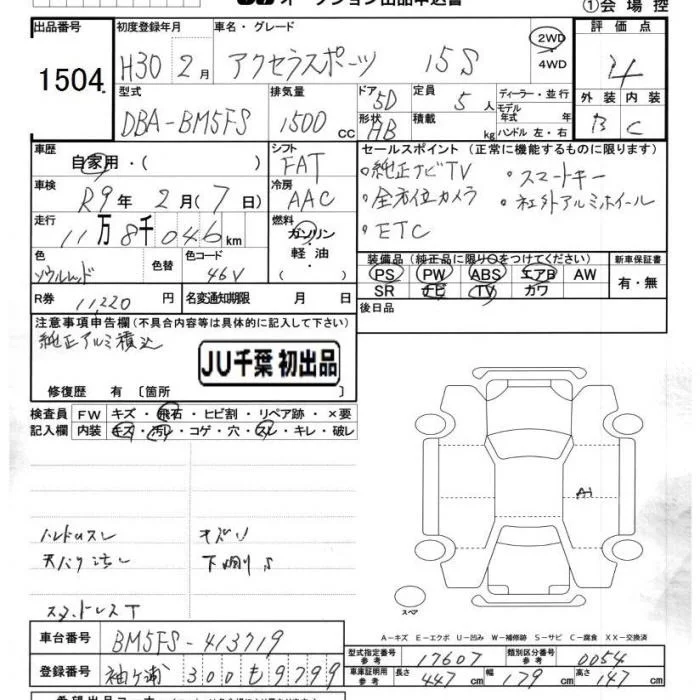 オークション出品申込書 ①会場控
出品番号 1504
初度登録年月 H30年2月
車名・グレード アクセラスポーツ 15S
2WD 4WD
評価点 4
外装 B 内装 C
型式 DBA-BM5FS
排気量 1500 cc
ドア 5D 形状 HB
定員 5人 積載 kg
ディーラー・並行
モデル年式 年
ハンドル 左・右
車歴 自家用・( )
シフト FAT
車検 R9年2月(7日)
冷房 AAC
走行 11万8千046km
燃料 ガソリン・軽油・( )
色 ソウルレッド 色替 色コード 46V
R券 11,220円 名変通知期限 月 日
セールスポイント (正常に機能するものに限ります)
・純正ナビTV ・スマートキー
・全方位カメラ ・社外アルミホイール
・ETC
装備品(純正品に限り○をつけてください)
PS PW ABS エアB AW
SR ナビ TV カワ
新車保証書 有・無
後日品
注意事項申告欄(不具合内容等は具体的に記入して下さい)
純正アルミ積込
JU千葉 初出品
修復歴 有〔箇所 〕
検査員記入欄 FW キズ・飛石・ヒビ割・リペア跡・×要
内装 キズ・汚レ・コゲ・穴・スレ・キレ・破レ
ハンドルスレ キズリ
天バリ汚レ 下廻リS
A1
スペア
A－キズ E－エクボ U－凹み W－補修跡 S－サビ C－腐食 XX－交換済
車台番号 BM5FS-413719
登録番号 袖ケ浦 300 も 9799
型式指定番号 参考 17607 類別区分番号 参考 0054
車体証明用 参考 長さ 447cm 幅 179cm 高さ 147cm